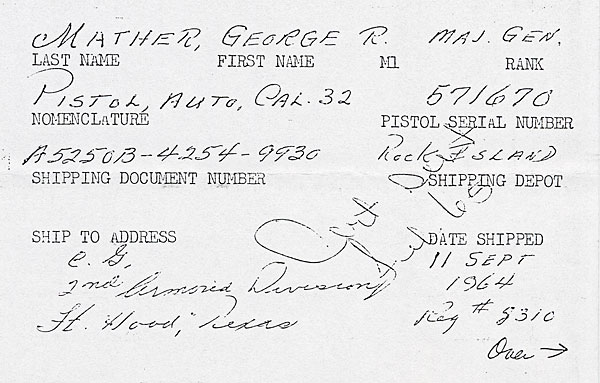 MATHER, GEORGE R. MAJ. GEN.
LAST NAME FIRST NAME M1 RANK
PISTOL, AUTO, CAL. 32 571670
NOMENCLATURE PISTOL SERIAL NUMBER
A5250B-4254-9930 ROCK ISLAND
SHIPPING DOCUMENT NUMBER SHIPPING DEPOT
SHIP TO ADDRESS DATE SHIPPED
C. G. 11 SEPT
2nd Armored Division 1964
Ft. Hood, Texas Reg # 8310
Over →